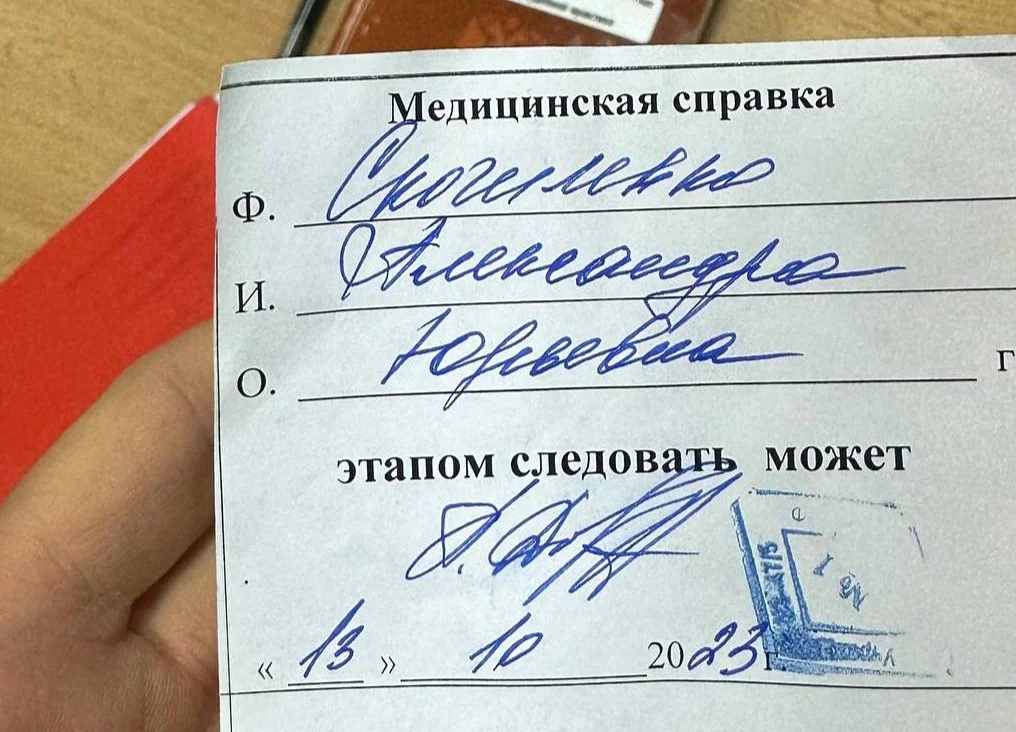 Медицинская справка
Ф. Скочиленко
И. Александра
О. Юрьевна г
этапом следовать может
« 13 » 10 2023 г.